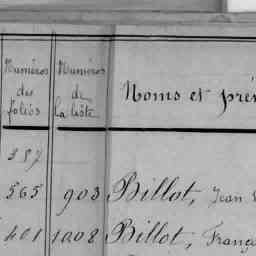 Numéros des folios Numéros de la liste Noms et pré
357
565 903 Billot, Jean
401 1008 Billot, Franço